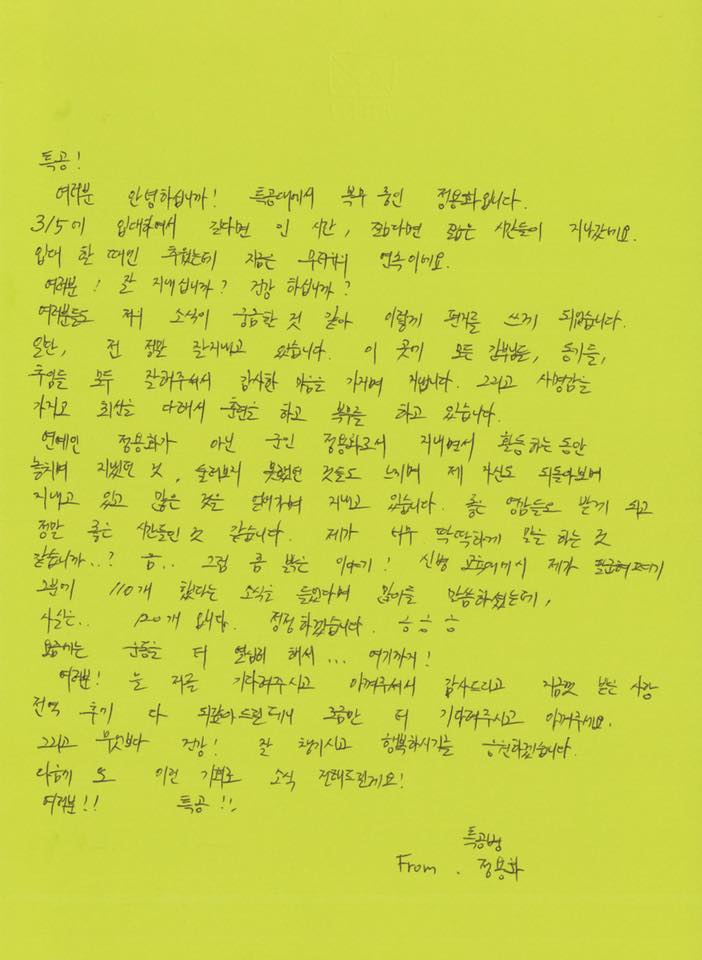 특공!
여러분 안녕하십니까! 특공대에서 복무 중인 정용화입니다.
3/5에 입대하여서 길다면 긴 시간, 짧다면 짧은 시간들이 지나갔네요.
입대 할 때만 추웠는데 지금은 무더위의 연속이네요.
여러분! 잘 지내십니까? 건강 하십니까?
여러분들도 저의 소식이 궁금한 것 같아 이렇게 편지를 쓰게 되었습니다.
일단, 전 정말 잘지내고 있습니다. 이 곳에 모든 간부님들, 동기들,
후임들 모두 잘해주셔서 감사한 마음을 가지며 지냅니다. 그리고 사명감을
가지고 최선을 다해서 훈련을 하고 복무를 하고 있습니다.
연예인 정용화가 아닌 군인 정용화로서 지내면서 활동하는 동안
놓치며 지냈던 것, 둘러보지 못했던 것들도 느끼며 제 자신도 되돌아보며
지내고 있고 많은 것을 얻어가며 지내고 있습니다. 좋은 영감들도 받게 되고
정말 좋은 시간들인 것 같습니다. 제가 너무 딱딱하게 말을 하는 것
같습니까..? 흠.. 그럼 좀 밝은 이야기! 신병 교육대에서 제가 팔굽혀펴기
2분에 110개 했다는 소식을 들었다며 많이들 말씀하셨는데,
사실은.. 120개 입니다. 정정하겠습니다. ㅎㅎㅎ
요즘에는 운동을 더 열심히 해서... 여기까지!
여러분! 늘 저를 기다려주시고 아껴주셔서 감사드리고 지금껏 받은 사랑
전역 후에 다 되갚아드릴테니 조금만 더 기다려주시고 아껴주세요.
그리고 무엇보다 건강! 잘 챙기시고 행복하시기를 응원하겠습니다.
다음에 또 이런 기회로 소식 전해드릴게요!
여러분!! 특공!!
특공병
From. 정용화